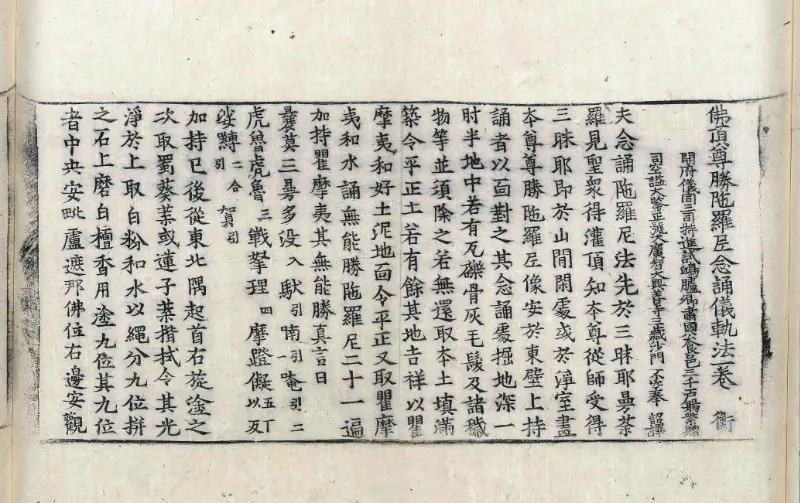 佛頂尊勝陁羅尼念誦儀軌法卷 衡
開府儀同三司特進試鴻臚卿肅國公食邑三千戶賜紫贈
司空謚大鑒正號大廣智大興善寺三藏沙門不空奉 詔譯
夫念誦陁羅尼法先於三昧耶曼茶
羅見聖衆得灌頂知本尊從師受得
三昧耶即於山間閑處或於淨室畫
本尊尊勝陁羅尼像安於東壁上持
誦者以面對之其念誦處掘地深一
肘半地中若有瓦礫骨灰毛髮及諸穢
物等並須除之若無還取本土填滿
築令平正土若有餘其地吉祥以瞿
摩夷和好土泥地面令平正又取瞿摩
夷和水誦無能勝陁羅尼二十一遍
加持瞿摩夷其無能勝真言曰
曩莫三曼多没入馱引喃引一唵引二
虎嚕虎嚕三戰拏理四摩蹬儗五丁以反
娑嚩二合引賀引
加持已後從東北隅起首右旋塗之
次取蜀葵葉或蓮子葉揩拭令其光
淨於上取白粉和水以繩分九位拼
之石上磨白檀香用塗九位其九位
者中央安毗盧遮那佛位右邊安觀